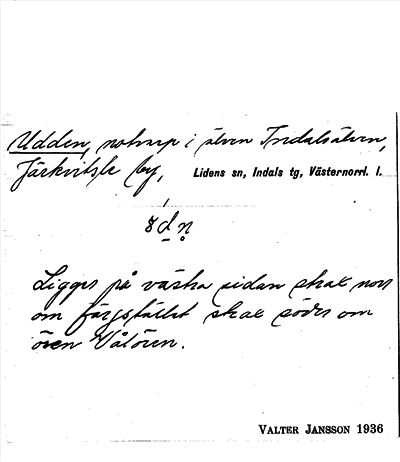 Udden, notvarp i älven Indalsälven,
Järkvitsle by, Lidens sn, Indals tg, Västernorrl. l.
Ligger på västra sidan strax norr
om färjstället strax söder om
ören Vålören.
VALTER JANSSON 1936